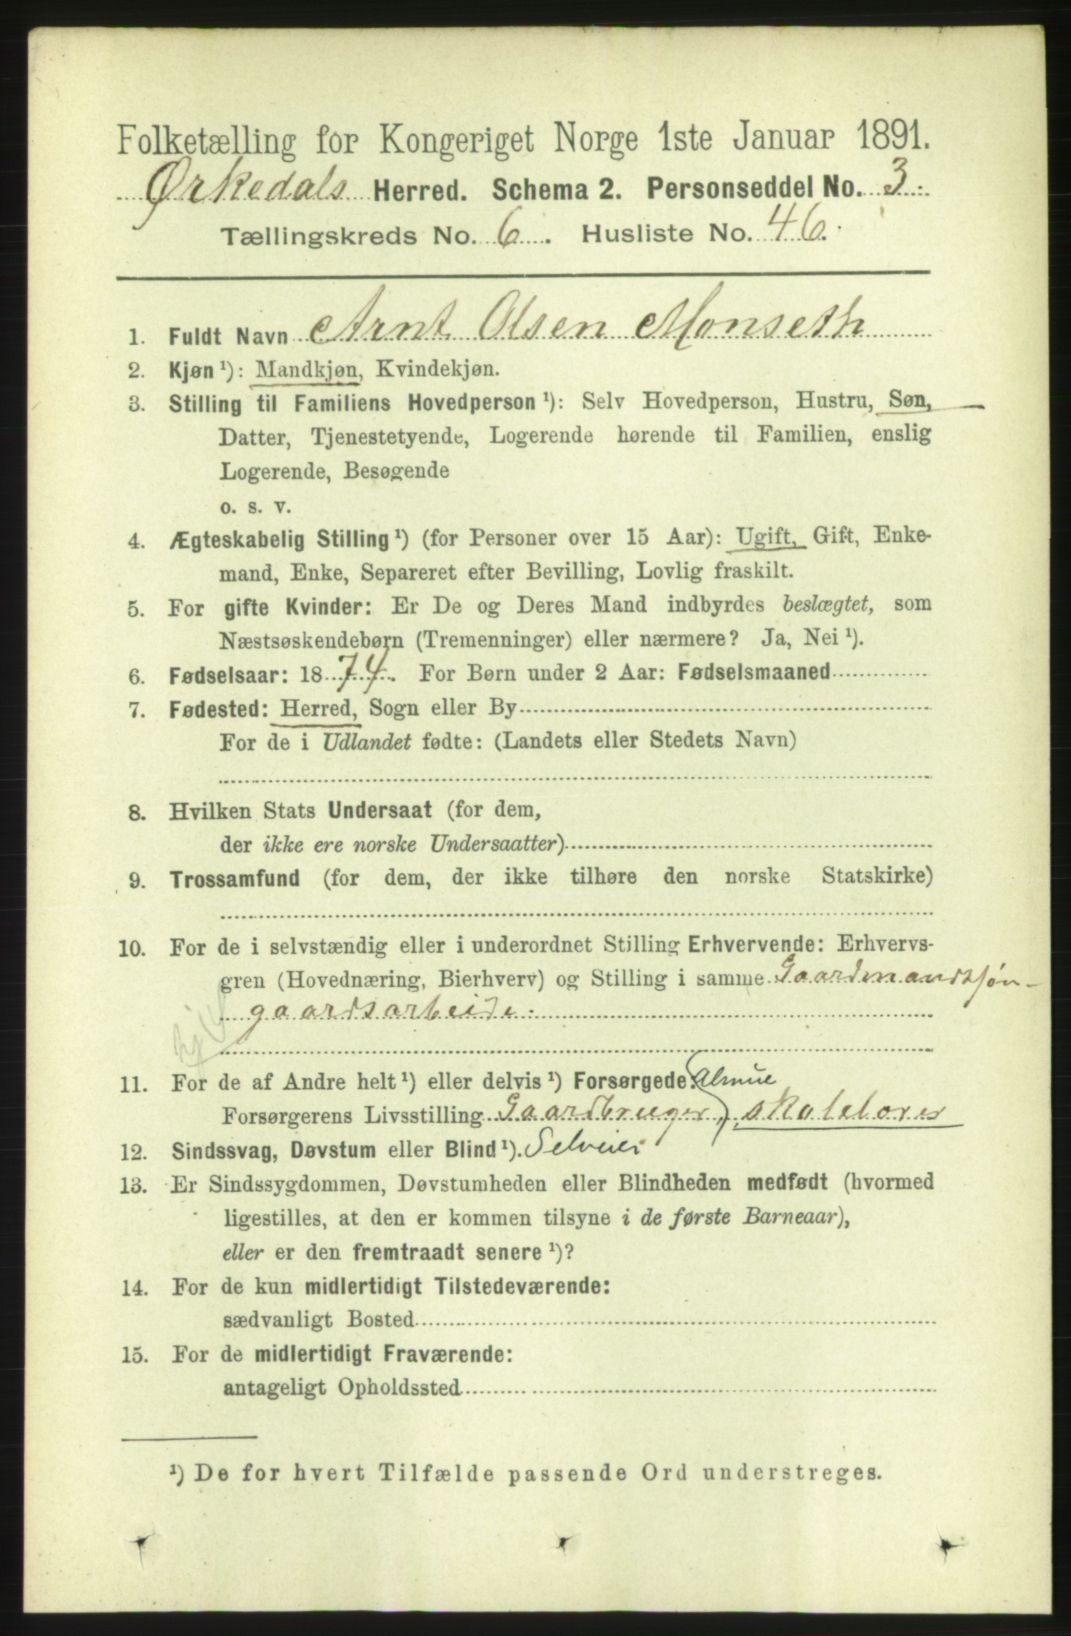 Folketælling for Kongeriget Norge 1ste Januar 1891.
Ørkedals Herred. Schema 2. Personseddel No. 3.
Tællingskreds No. 6. Husliste No. 46.
1. Fuldt Navn Arnt Olsen Monseth
2. Kjøn ¹): Mandkjøn, Kvindekjøn.
3. Stilling til Familiens Hovedperson ¹): Selv Hovedperson, Hustru, Søn,
Datter, Tjenestetyende, Logerende hørende til Familien, enslig
Logerende, Besøgende
o. s. v.
4. Ægteskabelig Stilling ¹) (for Personer over 15 Aar): Ugift, Gift, Enke-
mand, Enke, Separeret efter Bevilling, Lovlig fraskilt.
5. For gifte Kvinder: Er De og Deres Mand indbyrdes beslægtet, som
Næstsøskendebørn (Tremenninger) eller nærmere? Ja, Nei ¹).
6. Fødselsaar: 1874. For Børn under 2 Aar: Fødselsmaaned
7. Fødested: Herred, Sogn eller By
For de i Udlandet fødte: (Landets eller Stedets Navn)
8. Hvilken Stats Undersaat (for dem,
der ikke ere norske Undersaatter)
9. Trossamfund (for dem, der ikke tilhøre den norske Statskirke)
10. For de i selvstændig eller i underordnet Stilling Erhvervende: Erhvervs-
gren (Hovednæring, Bierhverv) og Stilling i samme Gaardmandssøn-
gaardsarbeide.
11. For de af Andre helt ¹) eller delvis ¹) Forsørgede: Almue
Forsørgerens Livsstilling Gaardbruger, skolelærer
12. Sindssvag, Døvstum eller Blind ¹). Selveier
13. Er Sindssygdommen, Døvstumheden eller Blindheden medfødt (hvormed
ligestilles, at den er kommen tilsyne i de første Barneaar),
eller er den fremtraadt senere ¹)?
14. For de kun midlertidigt Tilstedeværende:
sædvanligt Bosted
15. For de midlertidigt Fraværende:
antageligt Opholdssted
¹) De for hvert Tilfælde passende Ord understreges.